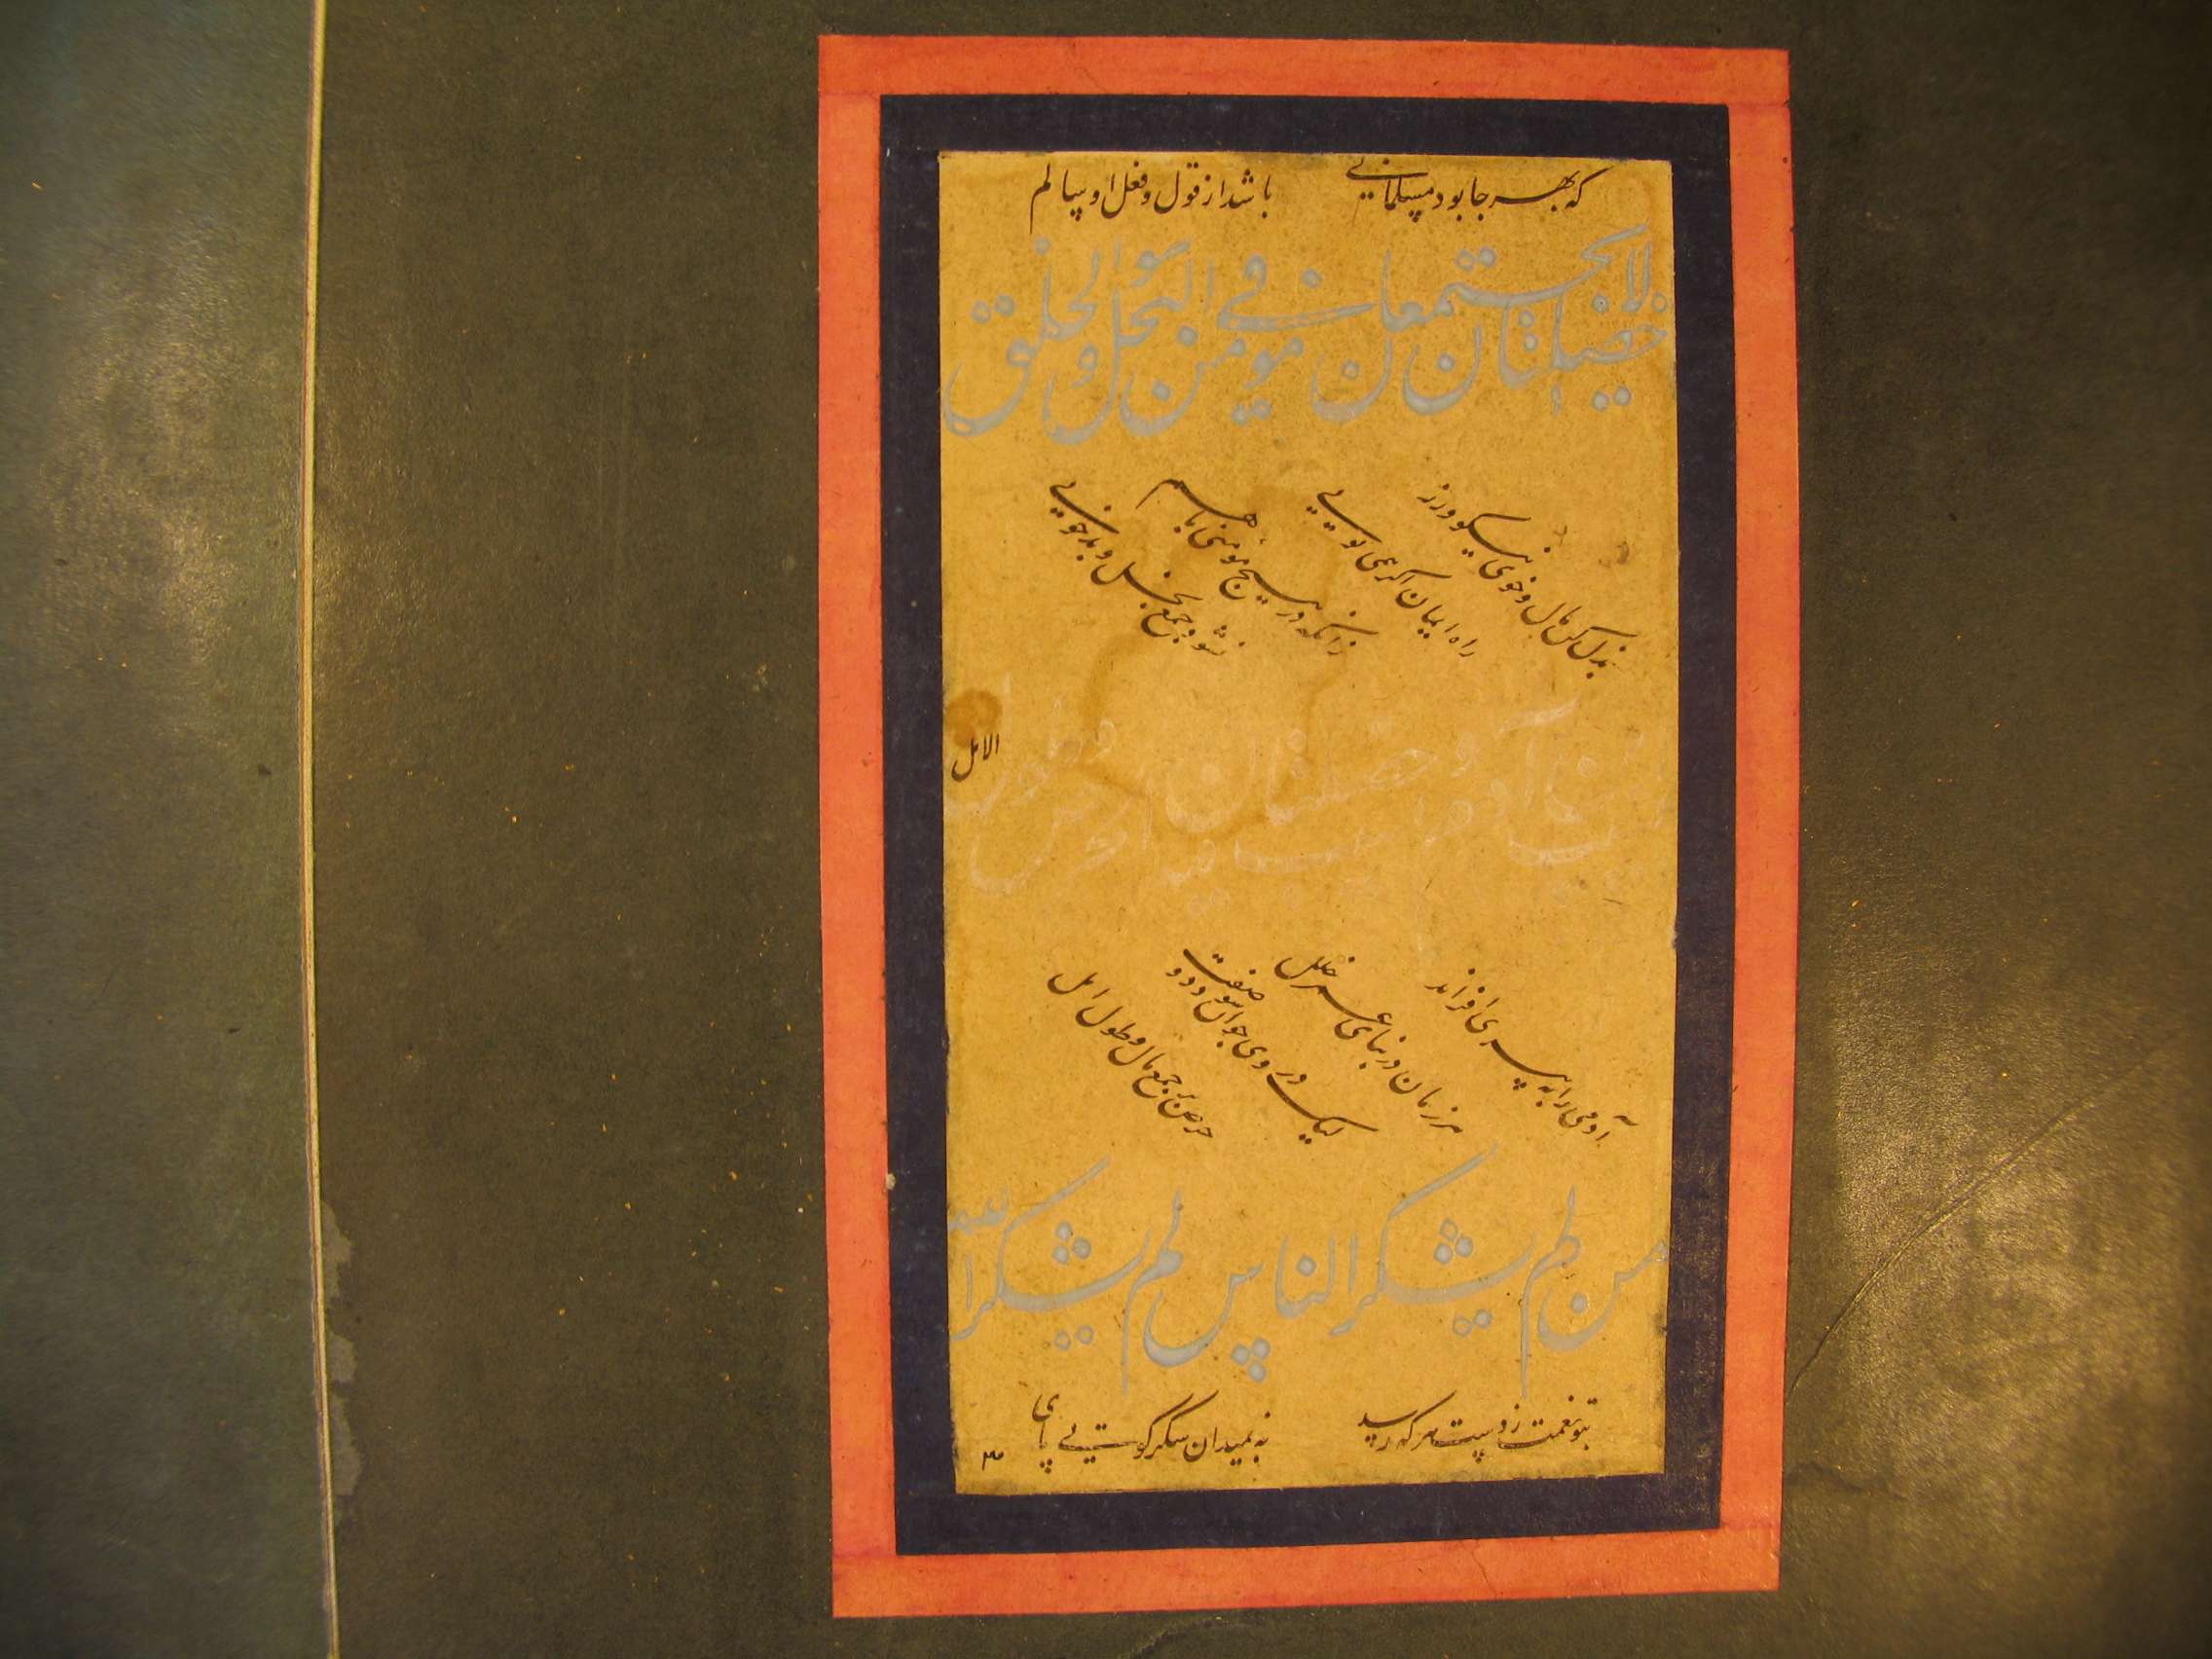 که بهر جا بود مسلمانی باشد از قول و فعل او سالم
خصلتان لا یجتمعان فی مومن البخل و سوا الخلق
بذل کن مال و خوی نیکو ورز
راه ایمان اکر همی پویی
زانکه در هیچ مومنی با هم
نشود جمع بخل و بدخویی
یشیب ابن آدم و یشب فیه خصلتان الحرص و طول
الامل
آدمی را به پیری افزاید
هر زمان در بنای عمر خلل
لیک در وی جوان شود دو صفت
حرص بر جمع مال و طول امل
من لم یشکر الناس لم یشکر الله
بتو نعمت ز دست هر که رسید نه بمیدان شکر کویی پای